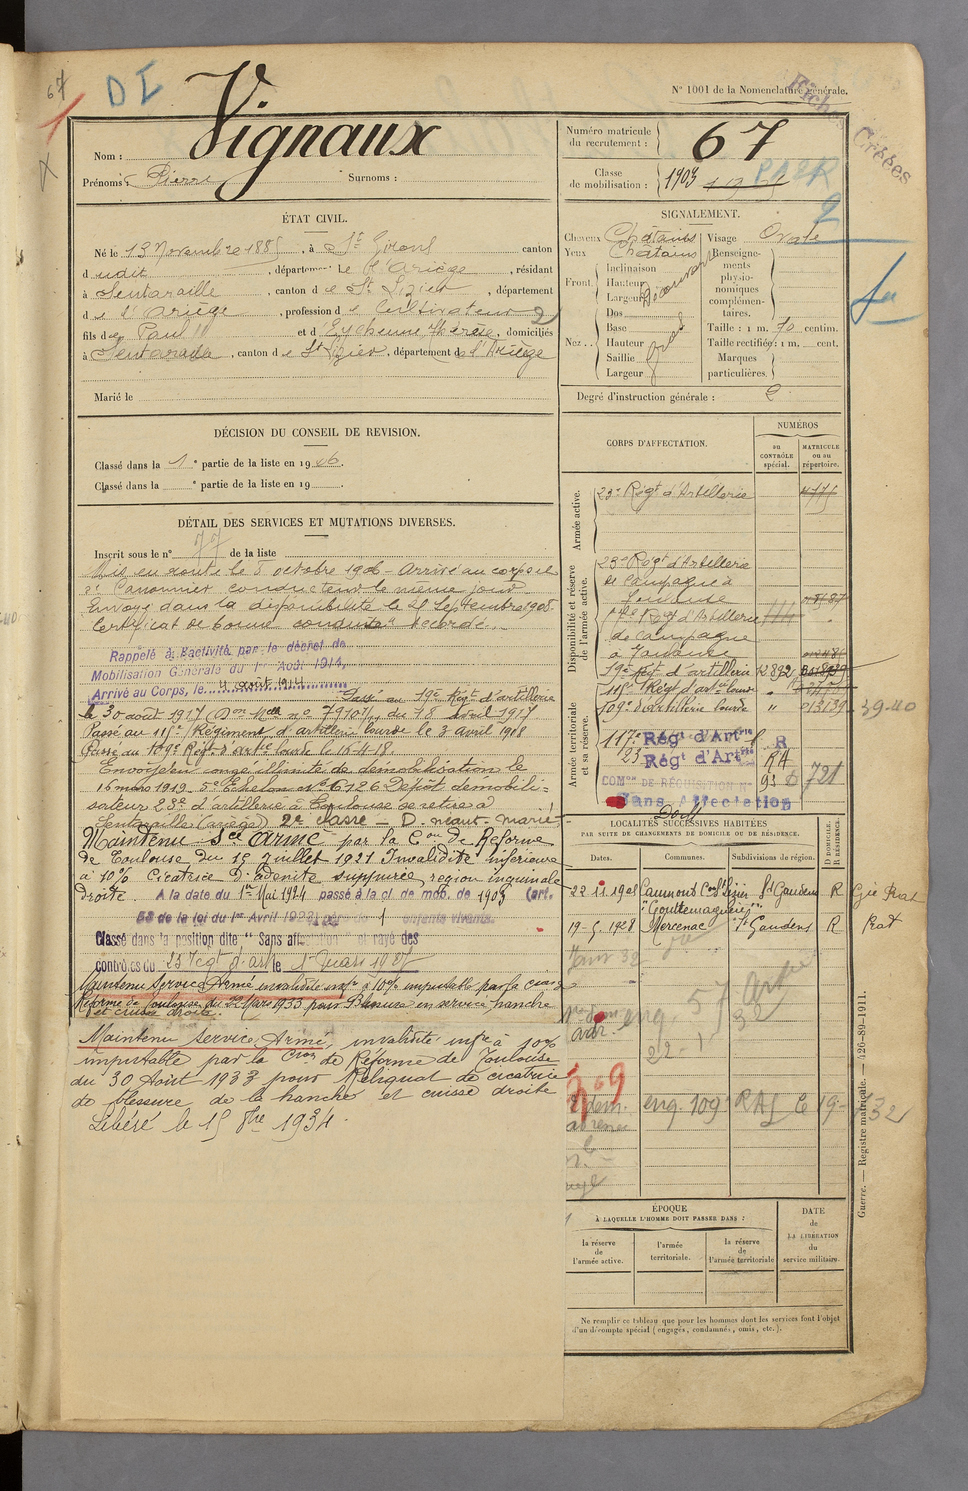 67
DI
Vignaux
N° 1001 de la Nomenclature générale.
Fiches Créées
Nom :
Prénoms : Pierre Surnoms :
Numéro matricule du recrutement : 67
Classe de mobilisation : 1903
ÉTAT CIVIL.
Né le 13 Novembre 1885, à St Girons canton
dudit, département de l'Ariège, résidant
à Sentaraille, canton de St Lizier, département
de l'Ariège, profession de Cultivateur
fils de Paul et d'Eychenne Thérèse, domiciliés
à Sentaraille, canton de St Lizier, département de l'Ariège
Marié le
SIGNALEMENT.
Cheveux Châtains Visage Ovale
Yeux Châtains Renseignements physionomiques complémentaires.
Front. Inclinaison
Hauteur
Largeur
Nez. Dos
Base
Hauteur
Saillie
Largeur
Taille : 1 m. 70 centim.
Taille rectifiée : 1 m. cent.
Marques particulières.
Degré d'instruction générale : 2
DÉCISION DU CONSEIL DE REVISION.
Classé dans la 1e partie de la liste en 1906.
Classé dans la e partie de la liste en 19
DÉTAIL DES SERVICES ET MUTATIONS DIVERSES.
Inscrit sous le n° 77 de la liste
Mis en route le 5 octobre 1906 Arrivé au corps le
2e Canonnier conducteur le même jour
Envoyé dans la disponibilité le 25 Septembre 1908
Certificat de bonne conduite Accordé.
Rappelé à l'activité par le décret de
Mobilisation Générale du 1er Août 1914,
Arrivé au Corps, le 4 août 1914
Passé au 19e Régt d'artillerie
le 30 août 1917 (Don Mlle n° 7910 du 18 avril 1917
Passé au 115e Régiment d'artillerie lourde le 3 avril 1918
Passé au 109e Régt d'artie lourde le 16-4-18.
Envoyé en congé illimité de démobilisation le
16 mars 1919 5e Échelon N° 6126 Dépôt démobili-
sateur 23e d'artillerie à Toulouse se retire à
Sentaraille (ariège) 2e classe - D. néant - marié
Maintenu Sce armé par la Con de Réforme
de Toulouse du 15 Juillet 1921 Invalidité inférieure
à 10% Cicatrice d'adénite suppurée région inguinale
droite. A la date du 1er Mai 1924 passé à la cl. de mob. de 1903 (art.
58 de la loi du 1er Avril 1923) père de 1 enfants vivants.
Classé dans la position dite "Sans affectation" et rayé des
contrôles du 23 Régt d'art le 1 Mars 1927
Maintenu Service Armé invalidité infre à 10% imputable par la Cion de
Réforme de Toulouse du 22 Mars 1933 pour Blessures en service, hanche
et cuisse droite.
Maintenu Service Armé, invalidité infre à 10%
imputable par la Cion de Réforme de Toulouse
du 30 Août 1933 pour Reliquat de cicatrice
de blessure de la hanche et cuisse droite
Libéré le 15 8bre 1934.
CORPS D'AFFECTATION.
NUMÉROS
au CONTRÔLE spécial.
MATRICULE ou au répertoire.
Armée active.
23e Régt d'Artillerie
Disponibilité et réserve de l'armée active.
23e Régt d'Artillerie
de campagne à
Toulouse
Régt d'Artillerie
de campagne
à Toulouse
19e Régt d'artillerie 12892
Armée territoriale et sa réserve.
115e Régt d'artie lourde "
109e d'Artillerie lourde " 013139 39-40
117e Régt d'Artrie R
23 Régt d'Artrie RA
COMon DE RÉQUISITION N° 93 D 721
Sans Affectation
LOCALITÉS SUCCESSIVES HABITÉES
PAR SUITE DE CHANGEMENTS DE DOMICILE OU DE RÉSIDENCE.
Dates. Communes. Subdivisions de région. D DOMICILE. R RÉSIDENCE.
22 11 1908 Caumont Con St Lizier St Gaudens R
19-5-1928 Mercenac St Gaudens R
eng. 57 Artie
22-
369
eng. 109 RAL
ÉPOQUE
À LAQUELLE L'HOMME DOIT PASSER DANS :
la réserve de l'armée active.
l'armée territoriale.
la réserve de l'armée territoriale
DATE de LA LIBÉRATION du service militaire.
Ne remplir ce tableau que pour les hommes dont les services font l'objet
d'un décompte spécial (engagés, condamnés, omis, etc.).
Guerre. — Registre matricule. — 426-89-1911.